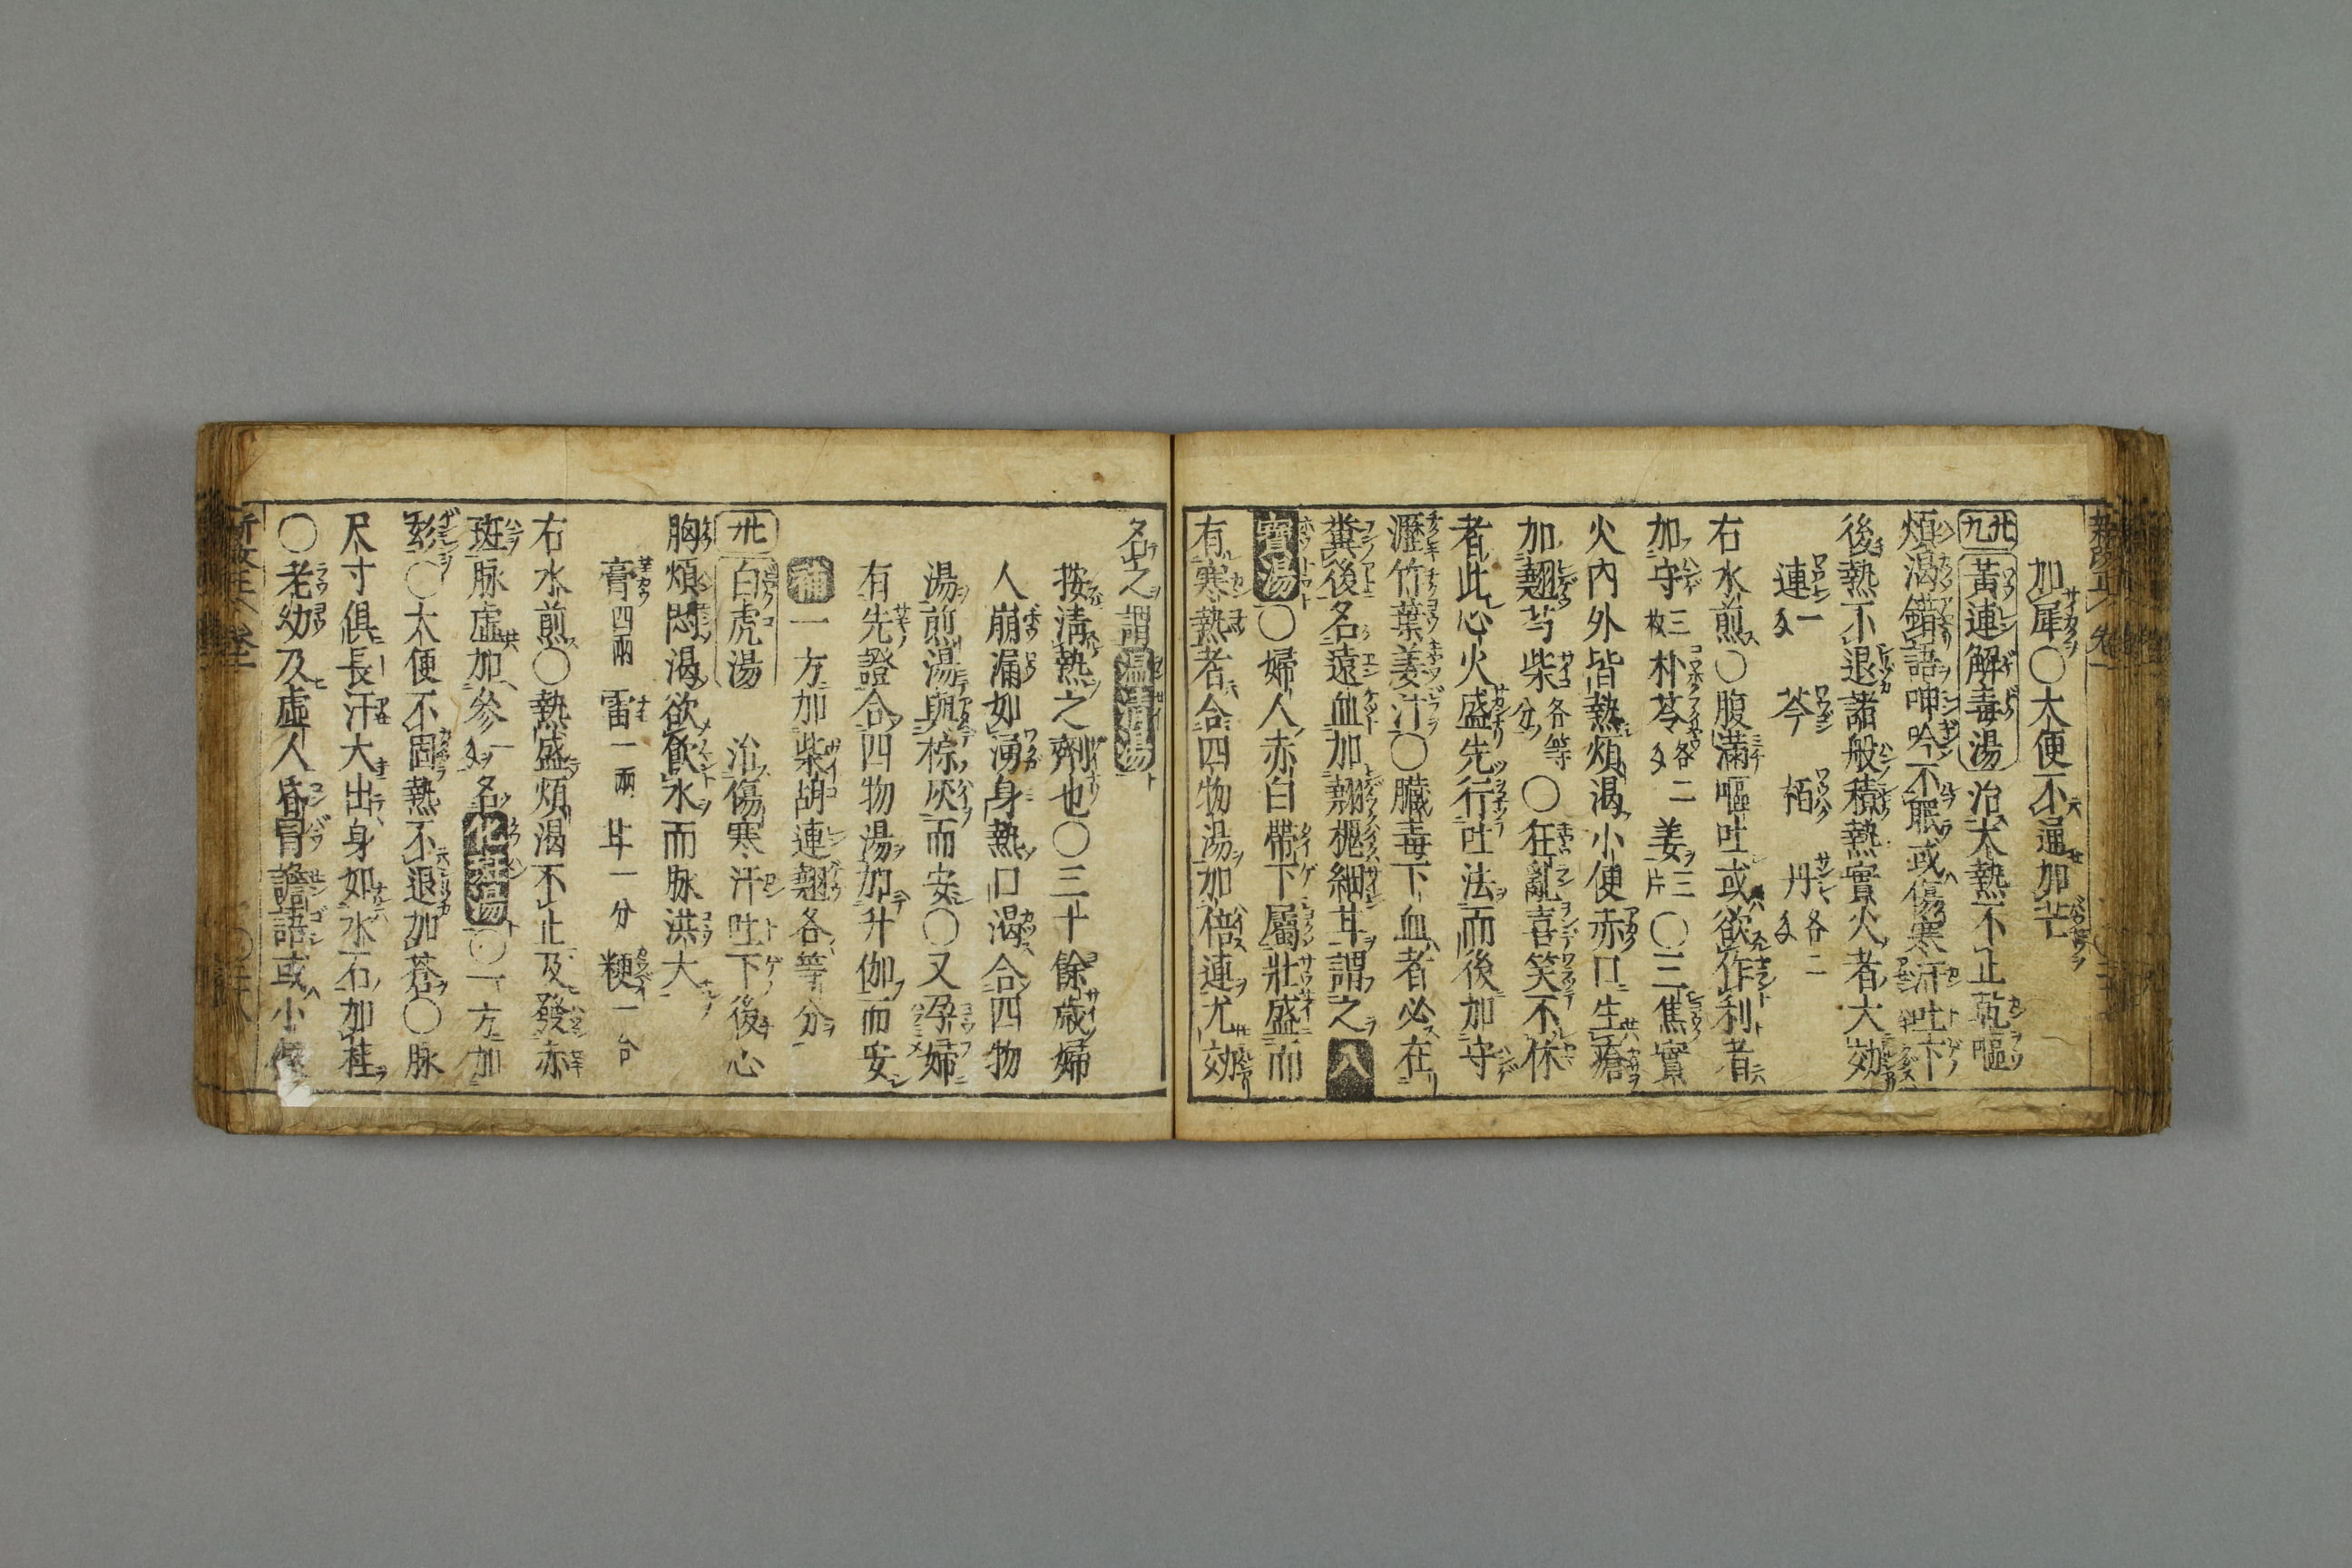 加犀○大便不通加芒
卅九 黃連解毒湯 治大熱不止乾嘔
煩渴錯語呻吟不眠或傷寒汗吐下
後熱不退諸般積熱實火者大効
連一匁 芩 栢 丹各二匁
右水煎○腹滿嘔吐或欲作利者
加守三枚朴苓各二匁姜三片○三焦實
火內外皆熱煩渴小便赤口生瘡
加翹芍柴各等分○狂亂喜笑不休
者此心火盛先行吐法而後加守
瀝竹葉姜汁○臟毒下血者必在
糞後名遠血加翹槐細甘謂之八
寶湯○婦人赤白帶下屬壯盛而
有寒熱者合四物湯加倍連尤効
名之謂温清湯
按淸熱之劑也○三十餘歲婦
人崩漏如湧身熱口渴合四物
湯煎湯與棕灰而安○又孕婦
有先證合四物湯加升伽而安
補 一方加柴胡連翹各等分
卅 白虎湯 治傷寒汗吐下後心
胸煩悶渴欲飲水而脉洪大
膏四兩 雷一兩 甘一分 粳一合
右水煎○熱盛煩渴不止及發赤
斑脉虛加參一匁名化斑湯○一方加
玄○大便不固熱不退加蒼○脉
尺寸俱長汗大出身如水石加桂
○老幼及虛人昏冒譫語或小便